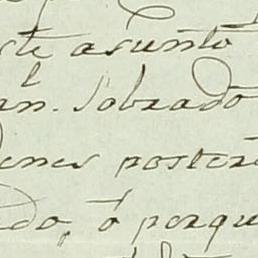 ste asunto
n. Sobrado
enes poster
do, ó porqu